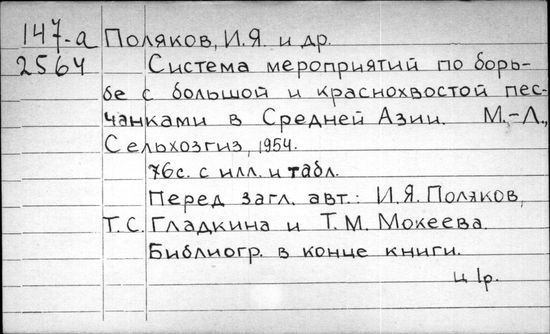 147-а Поляков, И.Я. и др.
2564 Система мероприятий по борь-
бе с большой и краснохвостой пес-
чанками в Средней Азии. М.-Л.,
Сельхозгиз, 1954.
76с. с илл. и табл.
Перед загл. авт.: И.Я. Поляков,
Т.С. Гладкина и Т.М. Мокеева.
Библиогр. в конце книги.
ц 1р.